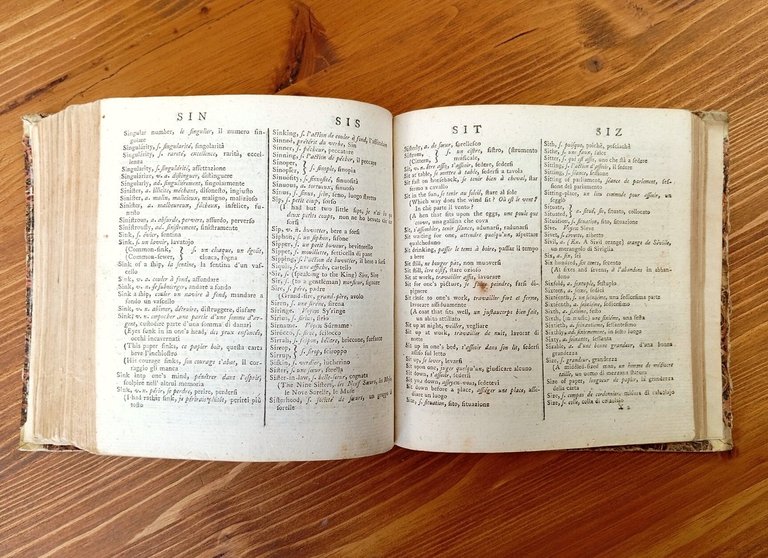 SIN
Singular number, le singulier, il numero sin-
golare
Singularity, s. singularité, singolarità
Singularity, s. rareté, excellence, rarità, eccel-
lenza
Singularity, s. singularité, affettazione
Singularize, v. a. distinguer, distinguere
Singularly, ad. singulièrement, singolarmente
Sinister, a. illicite, méchant, disonesto, ingiusto
Sinister, a. malin, malicieux, maligno, malizioso
Sinister, a. malheureux, fâcheux, infelice, fu-
nesto
Sinistrous, a. absurde, pervers, assurdo, perverso
Sinistrously, ad. sinistrement, sinistramente
Sink, s. évier, sentina
Sink, s. un lavoir, lavatojo
(Common-sink, } s. un cloaque, un égoût,
(Common-sewer, } cloaca, fogna
Sink of a ship, la sentine, la sentina d'un vas-
cello
Sink, v. a. couler à fond, affondare
Sink, v. n. se submerger, andare a fondo
Sink a ship, couler un navire à fond, mandare a
fondo un vascello
Sink, v. a. abimer, détruire, distruggere, disfare
Sink, v. a. emporter une partie d'une somme d'ar-
gent, custodire parte d'una somma di danari
(Eyes sunk in in one's head, des yeux enfoncés,
occhi incavernati
(This paper sinks, ce papier boit, questa carta
beve l'inchiostro
(His courage sinks, son courage s'abat, il co-
raggio gli manca
Sink into one's mind, pénétrer dans l'esprit,
scolpire nell' altrui memoria
Sink, v. n. périr, se perdre, perire, perdersi
(I had rather sink, je périrois plutôt, perirei più
tosto
SIS
Sinking, s. l'action de couler à fond, l'affondare
Sinned, prétérit du verbe, Sin
Sinner, s. pécheur, peccatore
Sinning, s. l'action de pécher, il peccare
Sinoper, } s. sinople, sinopia
Sinople, }
Sinuosity, s. sinuosité, sinuosità
Sinuous, a. tortueux, sinuoso
Sinus, s. sinus, sein, seno, luogo stretto
Sip, s. un petit coup, sorso
(I had but two little sips, je n'ai bu que
deux petits coups, non ne ho bevuto che due
sorsi
Sip, v. n. buvotter, bere a sorsi
Siphon, s. un siphon, sifone
Sipper, s. un petit buveur, bevitorello
Sippet, s. mouillette, fettolina di pane
Sipping, s. l'action de buvotter, il bere a sorsi
Siquis, s. une affiche, cartello
Sir, s. (speaking to the King) Sire, Sire
Sir, s. (to a gentleman) monsieur, signore
Sire, s. père, padre
(Grand-sire, grand-père, avolo
Siren, s. une sirène, sirena
Siringe. Voyez Syringe
Sirius, s. Sirius, sirio
Sirname. Voyez Surname
Sirocco, s. siroc, scilocco
Sirrah, s. maraud, coquin, briccone, furfante
Sirop, } s. sirop, sciroppo
Sirrup, }
Siskin, s. verdier, lucherino
Sister, s. sœur, sorella
Sister-in-law, s. belle sœur, cognata
(The Nine Sisters, les Neuf Sœurs, les Muses,
le Nove Sorelle, le Muse
Sisterhood, s. société de sœurs, un gruppo di
sorelle
SIT
Sisterly, a. de sœur, sorellesco
Sistrom, } s. un cistre, sistro, (strumento
(Cittern, } musicale,
Sit, v. n. être assis, s'asseoir, sedere, sedersi
Sit at table, se mettre à table, sedersi a tavola
Sit on horseback, se tenir bien à cheval, star
fermo a cavallo
Sit in the sun, se tenir au soleil, stare al sole
(Which way does the wind sit? Où est le vent?
In che parte il vento?
(A hen that sits upon the eggs, une poule qui
couve, una gallina che cova
Sit, v. n. s'assembler, tenir séance, adunarsi, radunarsi
Sit waiting for one, attendre quelqu'un, aspettare
qualcheduno
Sit drinking, passer le tems à boire, passar il tempo
a bere
Sit still, ne bouger pas, non muoversi
Sit still, être oisif, stare ozioso
Sit at work, travailler, lavorare
Sit for one's picture, se faire peindre, farsi di-
pignere
Sit close to one's work, travailler fort et ferme,
lavorare assiduamente
(A coat that sits well, un justaucorps bien fait,
un abito assettato
Sit up at night, veiller, vegliare
Sit up at work, travailler de nuit, lavorar di
notte
Sit up in one's bed, s'asseoir dans son lit, sedersi
assiso sul letto
Sit up, se lever, levarsi
Sit upon one, juger quelqu'un, giudicare alcuno
Sit down, s'asseoir, sedersi
Sit you down, asseyez-vous, sedetevi
Sit down before a place, assiéger une place, asse-
diare un luogo
Site, s. situation, sito, situazione
SIZ
Sith, s. puisque, poiché, posciachè
Sithe, s. une faux, falce
Sitter, s. qui est assis, uno che sta a sedere
Sitting, s. l'action de s'asseoir, il sedere
Sitting of Parliament, séance de parlement, ses-
sione del parlamento
Sitting-place, un lieu commode pour s'asseoir, un
seggio
Situate, } a. situé, sis, situato, collocato
Situated, }
Situation, s. situation, sito, situazione
Sive. Voyez Sieve
Sives, s. civette, cibetto
Sivil, a. (Ex. A Sivil orange) orange de Séville,
un melarangio di Siviglia
Six, a. six, sei
Six hundred, six cents, secento
(At sixes and sevens, à l'abandon, in abban-
dono
Sixfold, a. sextuple, sestuplo
Sixteen, a. seize, sedici
Sixteenth, a. seizième, sedicesimo
Sixteenth, s. un seizième, una sedicesima parte
Sixth, a. sixième, sesto
Sixth, s. un sixième, una sesta parte
Sixthly, ad. sixièmement, in sesto luogo
Sixtieth, a. soixantième, sessantesimo
Sixty, a. soixante, sessanta
Sizable, a. d'une bonne grandeur, d'una buona
grandezza
Size, s. grandeur, grandezza
(A middle-sized man, un homme de médiocre
taille, un uomo di mediocre statura
Size of paper, longueur de papier, la grandezza
della carta
Size, s. compas de cordonnier, misura di calzolajo
Size, s. colle, colla di calzolajo
X 2